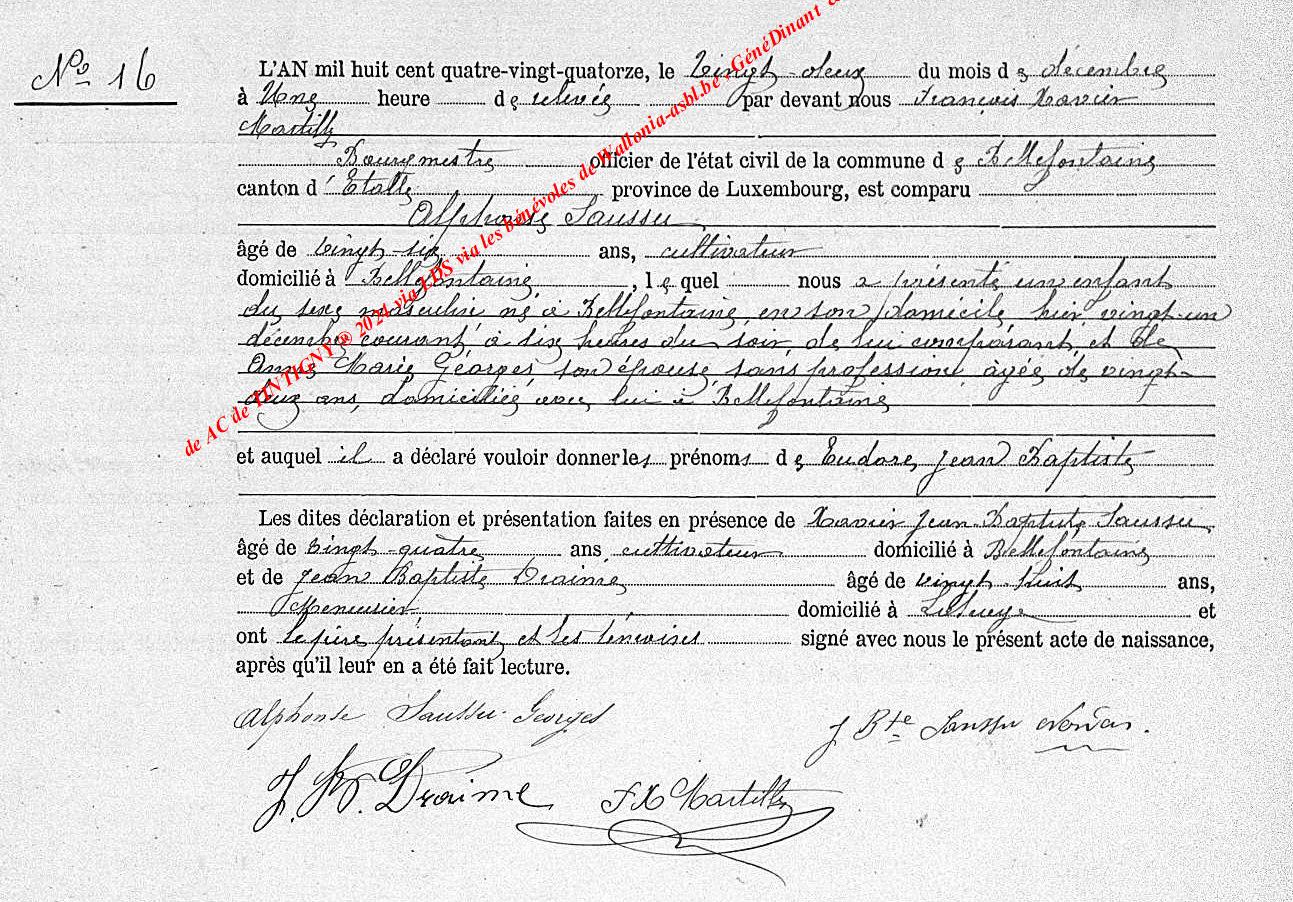 No 16
L'AN mil huit cent quatre-vingt-quatorze, le Vingt-deux du mois de décembre
à Une heure de relevée par devant nous François Xavier
Martilly
Bourgmestre officier de l'état civil de la commune de Bellefontaine
canton d'Etalle province de Luxembourg, est comparu
Alphonse Saussu
âgé de vingt-six ans, cultivateur
domicilié à Bellefontaine, lequel nous a présenté un enfant
du sexe masculin né à Bellefontaine, en son domicile, hier, vingt-un
décembre courant, à six heures du soir, de lui comparant, et de
Anne Marie Georges son épouse, sans profession, âgée de vingt-
deux ans, domiciliée avec lui à Bellefontaine
et auquel il a déclaré vouloir donner les prénoms de Eudore, Jean Baptiste
Les dites déclaration et présentation faites en présence de Xavier Jean-Baptiste Saussu
âgé de vingt-quatre ans cultivateur domicilié à Bellefontaine
et de Jean Baptiste Draime âgé de vingt-huit ans,
Menuisier domicilié à et
ont le père présentant et les témoins signé avec nous le présent acte de naissance,
après qu'il leur en a été fait lecture.
Alphonse Saussu-Georges
J Bte Saussu
J. Bte. Draime
F X Martilly
de AC de TINTIGNY® 2024 via LDS via les bénévoles de Wallonia-asbl.be - GénéDinant &